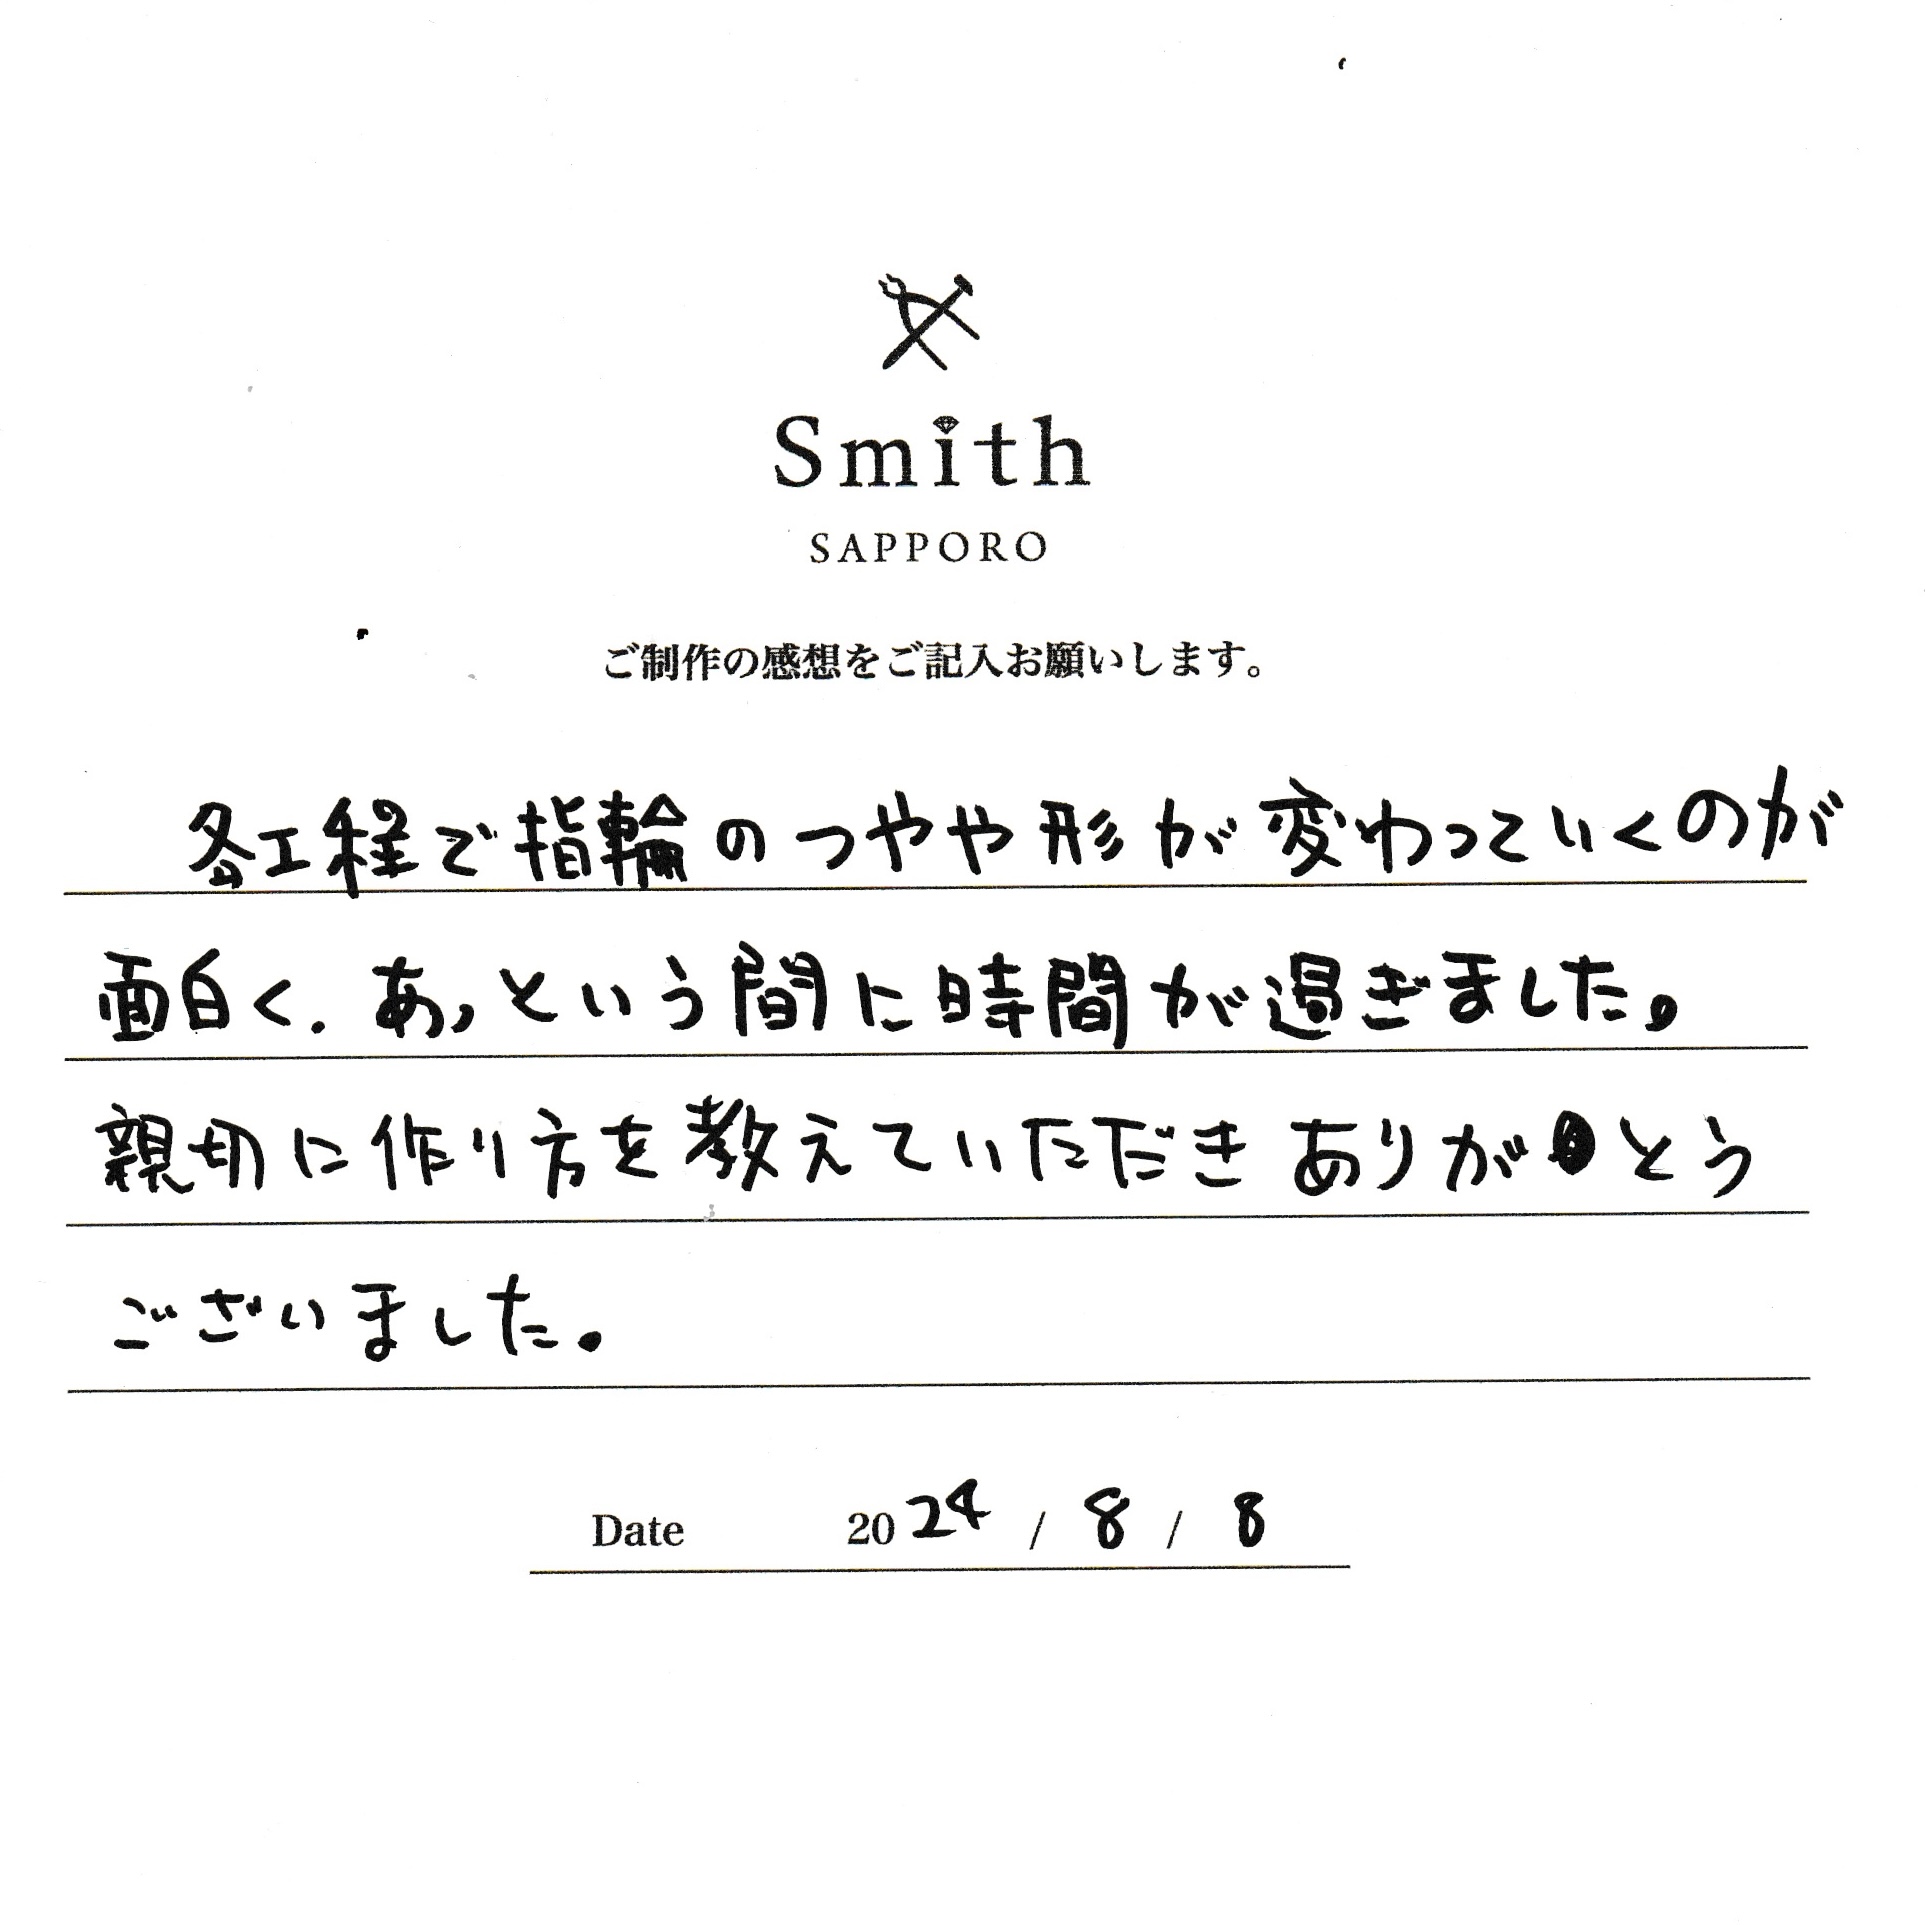 Smith
SAPPORO
ご制作の感想をご記入お願いします。
各工程で指輪のつやや形が変わっていくのが
面白く、あっという間に時間が過ぎました。
親切に作り方を教えていただきありがとう
ございました。
Date 2024 / 8 / 8